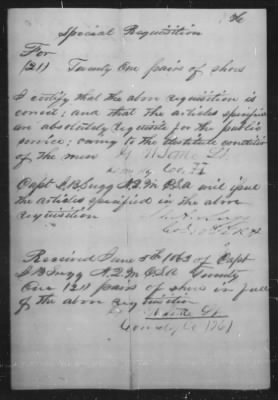 Special Requisition
For
(21) Twenty One pairs of shoes
I certify that the above requisition is
correct; and that the articles specified
are absolutely requisite for the public
service; owing to the destitute condition
of the men
Comdg Co.
Capt J B Sugg A.Q.M CSA will issue
the articles specified in the above
requisition
Received June 5th 1863 of Capt
J B Sugg A.Q.M CSA Twenty
One (21) pairs of shoes in full
of the above requisition
Comdg Co